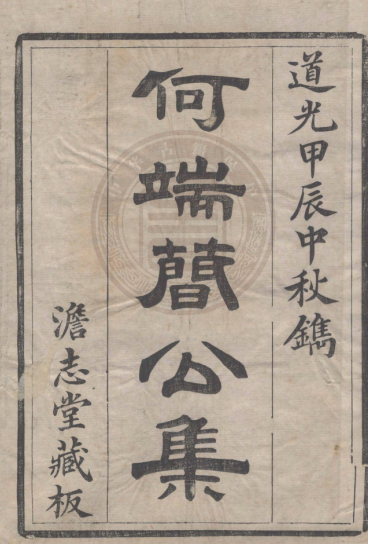 道光甲辰中秋鐫
何端簡公集
澹志堂藏板